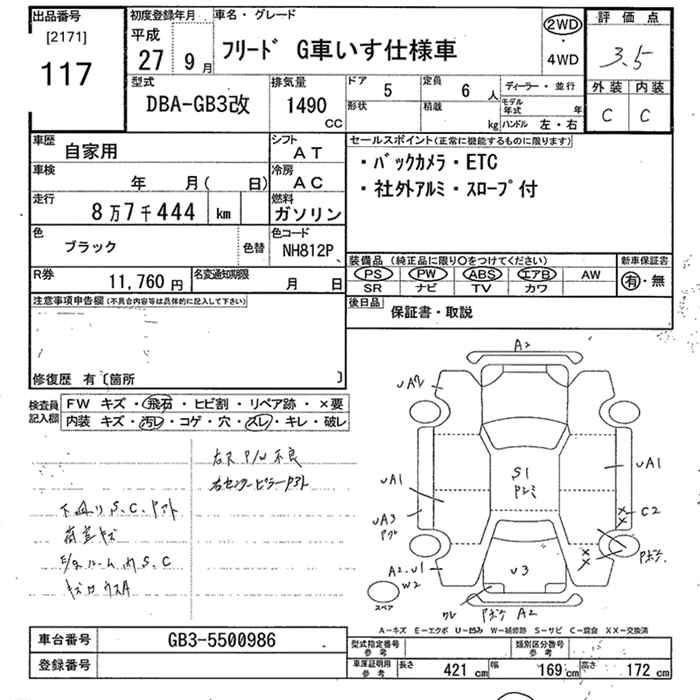 出品番号 初度登録年月 車名・グレード 評価点
[2171] 平成
117 27年 9月 フリード G車いす仕様車 2WD・4WD 3.5
型式 排気量 ドア 5 定員 6人 ディーラー・並行 外装 内装
DBA-GB3改 1490cc 形状 積載 kg モデル年式 年 C C
ハンドル 左・右
車歴 自家用 シフト AT セールスポイント(正常に機能するものに限ります)
車検 年 月( 日) 冷房 AC ・バックカメラ・ETC
・社外アルミ・スロープ付
走行 8万7千444 km 燃料 ガソリン
色 ブラック 色替 色コード NH812P
装備品(純正品に限り○をつけてください) 新車保証書
R券 11,760円 名変通知期限 月 日 PS PW ABS エアB AW 有・無
SR ナビ TV カワ
注意事項申告欄(不具合内容等は具体的に記入して下さい) 後日品 保証書・取説
修復歴 有〔箇所 〕
検査員記入欄 FW キズ・飛石・ヒビ割・リペア跡・×要
内装 キズ・汚レ・コゲ・穴・スレ・キレ・破レ
右ス P/W 不良
右センターピラーアト
下廻り S.C.アト
荷室キズ
S.C
A2
UA2
S1
UA1
UA1
UA3
C2
A2.U1
W2
U3
A2
スペア
A-キズ E-エクボ U-凹み W-補修跡 S-サビ C-腐食 XX-交換済
車台番号 GB3-5500986 型式指定番号 参考 類別区分番号 参考
登録番号 車庫証明用 参考 長さ 421cm 幅 169cm 高さ 172cm